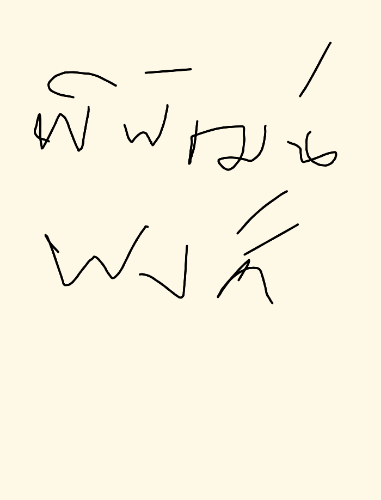 พิพัฒน์
พงศ์